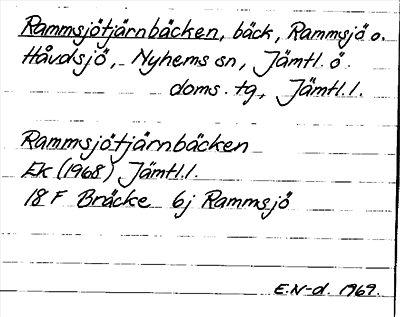 Rammsjötjärnbäcken, bäck, Rammsjö o.
Håvdsjö, Nyhems sn, Jämtl. ö.
doms. tg, Jämtl. l.
Rammsjötjärnbäcken
EK (1968) Jämtl. l.
18 F Bräcke 6j Rammsjö
E.N-d. 1969.